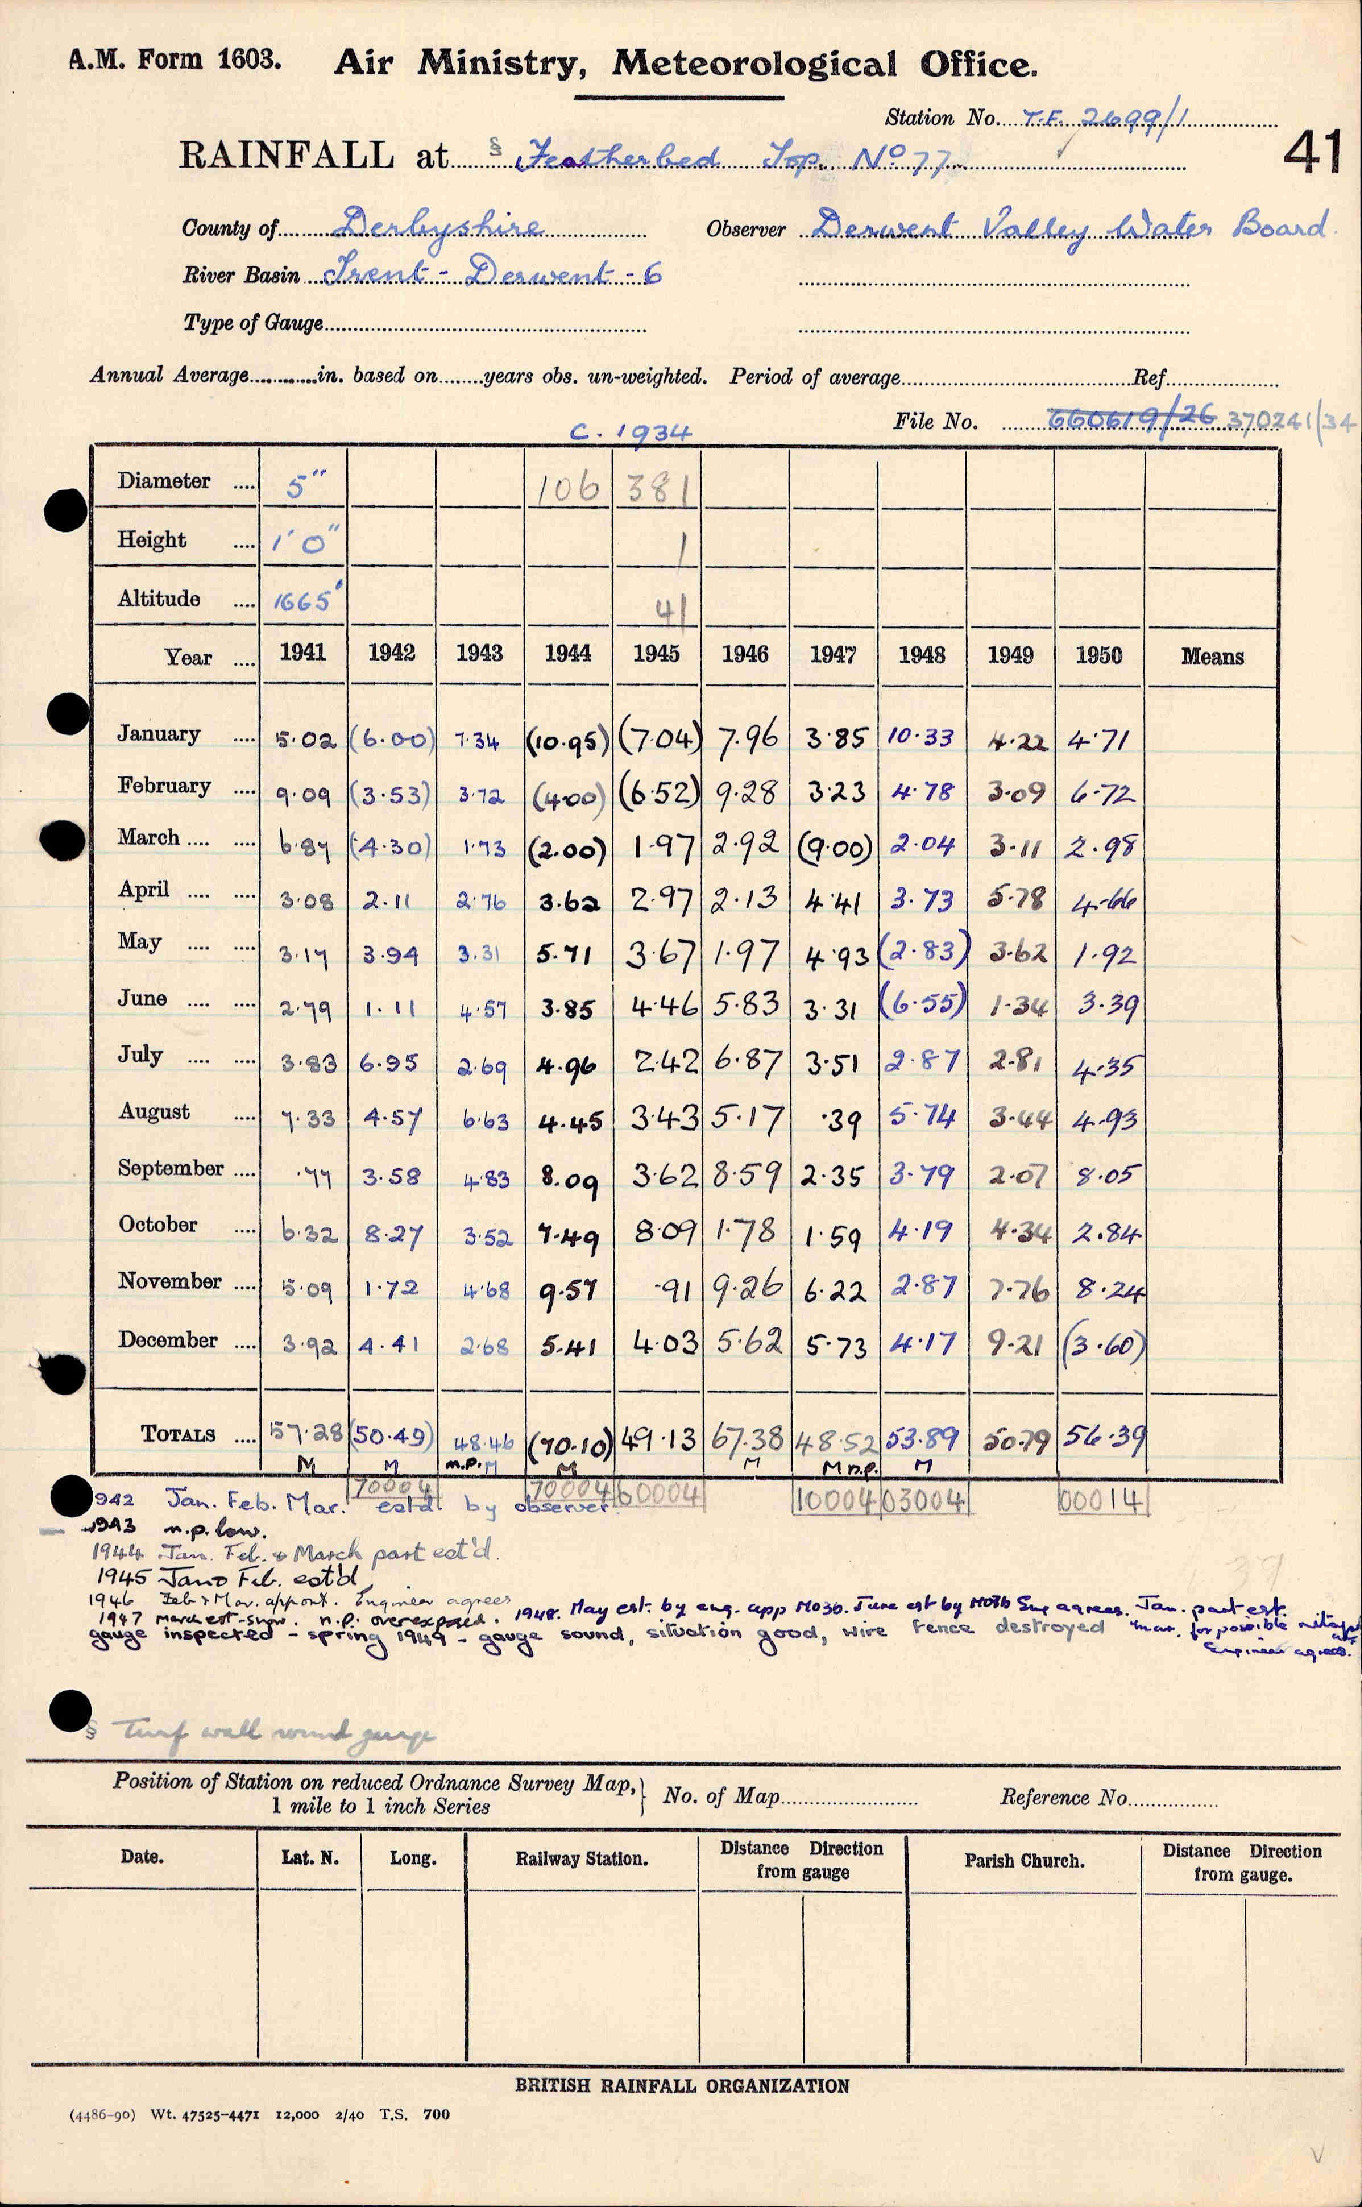 A.M. Form 1603. Air Ministry, Meteorological Office.
Station No. T.F. 2699/1
RAINFALL at § Featherbed Top. No 77 41
County of Derbyshire Observer Derwent Valley Water Board.
River Basin Trent - Derwent - 6
Type of Gauge
Annual Average in. based on years obs. un-weighted. Period of average Ref
File No. 660619/26 370241/34
C. 1934
Diameter 5" 106 381
Height 1'0" 1
Altitude 1665' 41
Year 1941 1942 1943 1944 1945 1946 1947 1948 1949 1950 Means
January 5.02 (6.00) 7.34 (10.95) (7.04) 7.96 3.85 10.33 4.22 4.71
February 9.09 (3.53) 3.72 (4.00) (6.52) 9.28 3.23 4.78 3.09 6.72
March 6.87 (4.30) 1.73 (2.00) 1.97 2.92 (9.00) 2.04 3.11 2.98
April 3.08 2.11 2.76 3.62 2.97 2.13 4.41 3.73 5.78 4.66
May 3.17 3.94 3.31 5.71 3.67 1.97 4.93 (2.83) 3.62 1.92
June 2.79 1.11 4.57 3.85 4.46 5.83 3.31 (6.55) 1.34 3.39
July 3.83 6.95 2.69 4.96 2.42 6.87 3.51 2.87 2.81 4.35
August 7.33 4.57 6.63 4.45 3.43 5.17 .39 5.74 3.44 4.93
September .77 3.58 4.83 8.09 3.62 8.59 2.35 3.79 2.07 8.05
October 6.32 8.27 3.52 7.49 8.09 1.78 1.59 4.19 4.34 2.84
November 5.09 1.72 4.68 9.57 .91 9.26 6.22 2.87 7.76 8.24
December 3.92 4.41 2.68 5.41 4.03 5.62 5.73 4.17 9.21 (3.60)
TOTALS 57.28 (50.49) 48.46 (70.10) 49.13 67.38 48.52 53.89 50.79 56.39
M M m.p. M M M M n.p. M
70004 70004 60004 10004 03004 00014
1942 Jan. Feb. Mar. estd by observer.
1943 n.p. low.
1944 Jan. Feb. & March part est'd.
1945 Jan & Feb. est'd
1946 Feb & Mar. apport. Engineer agrees
1947 March est-snow. n.p. overexposed. 1948. May est. by eng. app MO3b. June est by MO3b Eng agrees. Jan. part est.
gauge inspected - spring 1949 - gauge sound, situation good, wire fence destroyed Mar. for possible
Engineer agrees.
§ Turf wall round gauge
Position of Station on reduced Ordnance Survey Map, 1 mile to 1 inch Series } No. of Map Reference No.
Date. Lat. N. Long. Railway Station. Distance Direction from gauge Parish Church. Distance Direction from gauge.
BRITISH RAINFALL ORGANIZATION
(4486-90) Wt. 47525-4471 12,000 2/40 T.S. 700